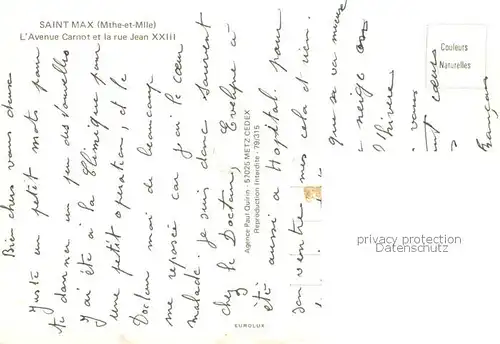 SAINT MAX (Mthe-et-Mlle)
L'Avenue Carnot et la rue Jean XXIII
Couleurs
Naturelles
Bien chers vous deux
Juste un petit mots pour
te donner un peu des Nouvelles
J'ai été à la Clinique pour
une petit opération, et le
Docteur moi de beaucoup
me reposé car j'ai le cœur
malade. Je suis donc souvent
chez le Docteur, Evelyne à
été aussi a Hopital pour
son ventre mes cela et rien.
que sa va mieux
neige
l'hiver
vous
cœurs
Français
Agence Paul Quirin - 57025 METZ CEDEX
Reproduction Interdite - 79/315
EUROLUX
privacy protection
Datenschutz